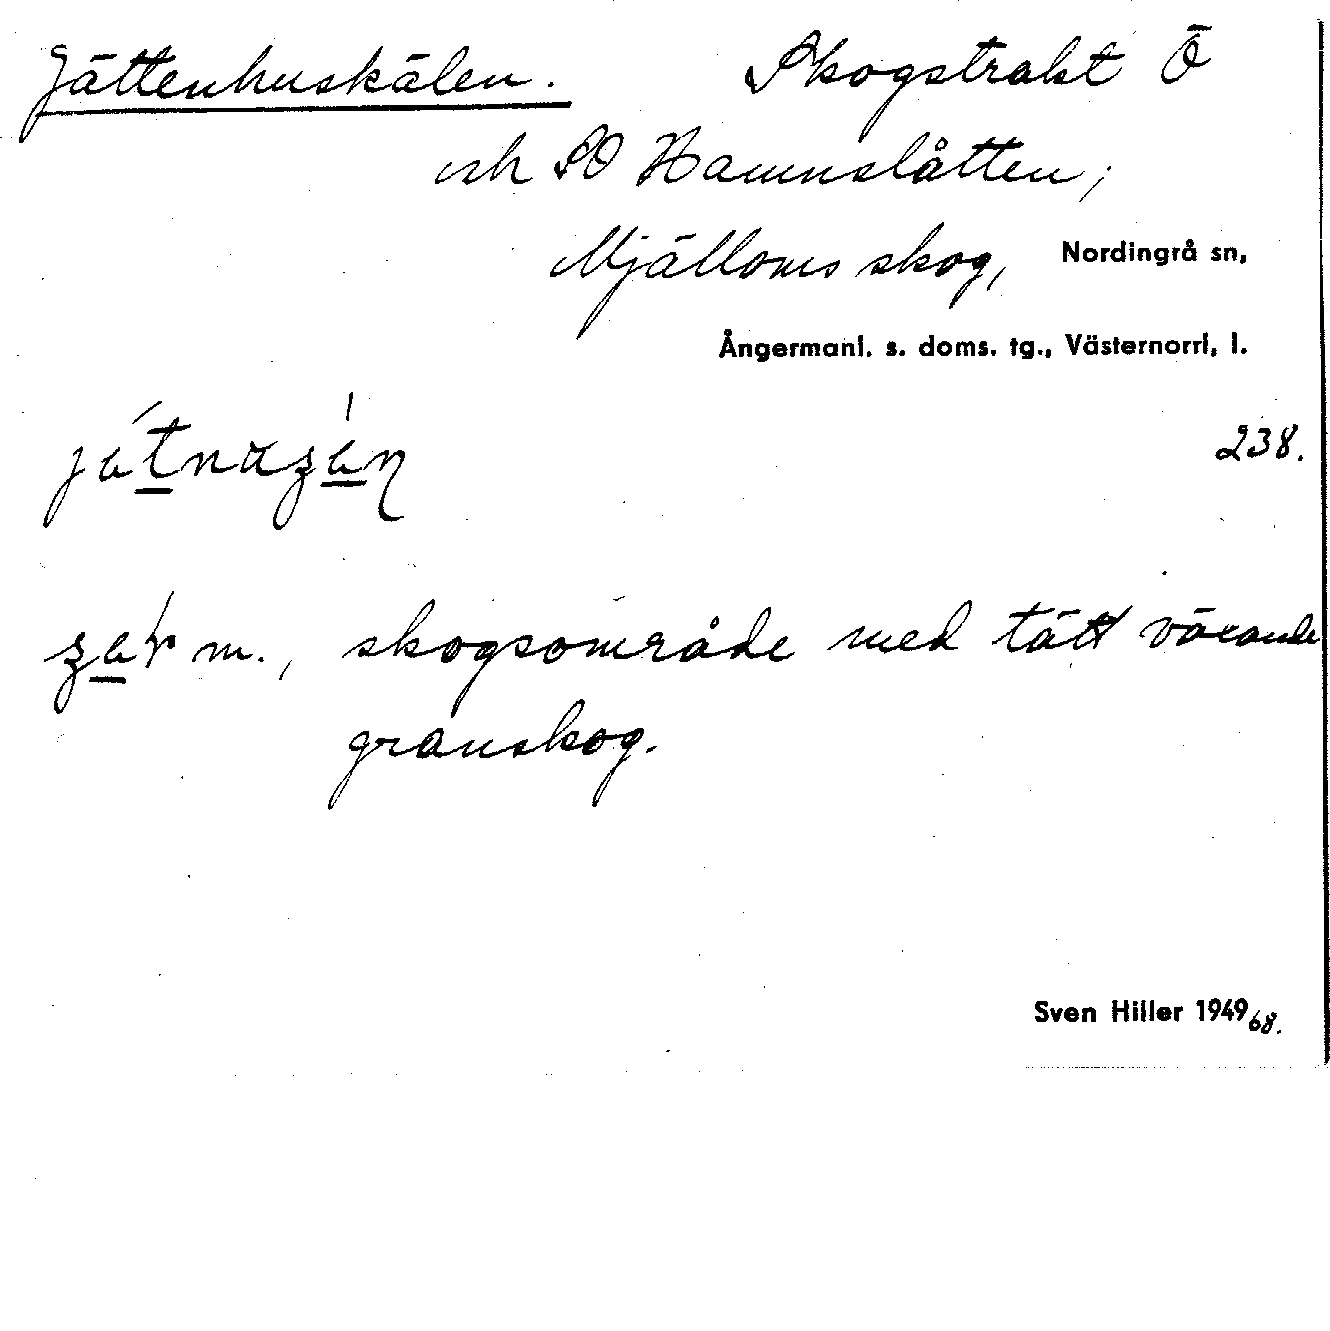 Jättenhuskälen. Skogstrakt Ö
och SO Hamnslåtten;
Mjälloms skog, Nordingrå sn,
Ångermanl. s. doms. tg., Västernorrl. l.
238.
m., skogsområde med tätt växande
granskog.
Sven Hiller 1949 68.